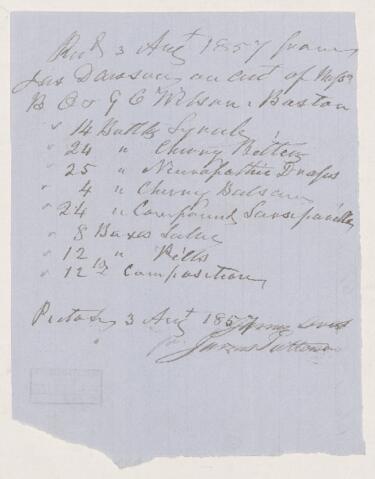 Recd 3 Augt 1857 from
Jas Dawson on acct of Messrs
B O & G C Wilson, Boston
" 14 Bottles Syrup
" 24 " Cherry Bitters
" 25 " Neuropathic Drops
" 4 " Cherry Balsam
" 24 " Compound Sarsiparilla
" 8 Boxes Salve
" 12 " Pills
" 12 lb Composition
Pictou 3 Augt 1857
James